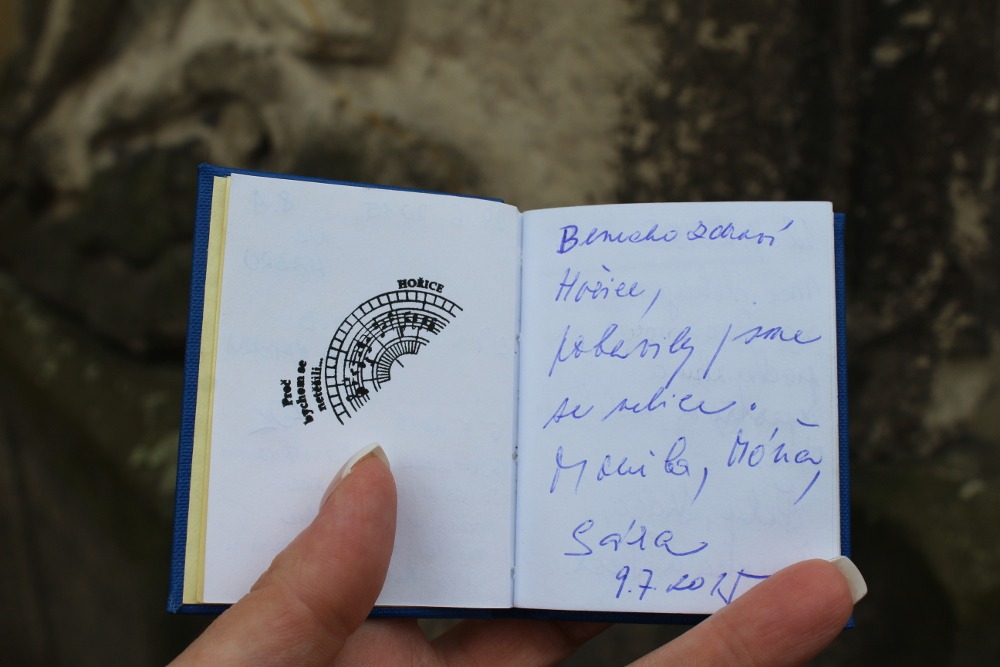 HOŘICE
Proč
bychom se
netěšili...
Benecko zdraví
Hořice,
pobavily jsme
se velice.
Monika, Móňa,
Sára
9.7.2025